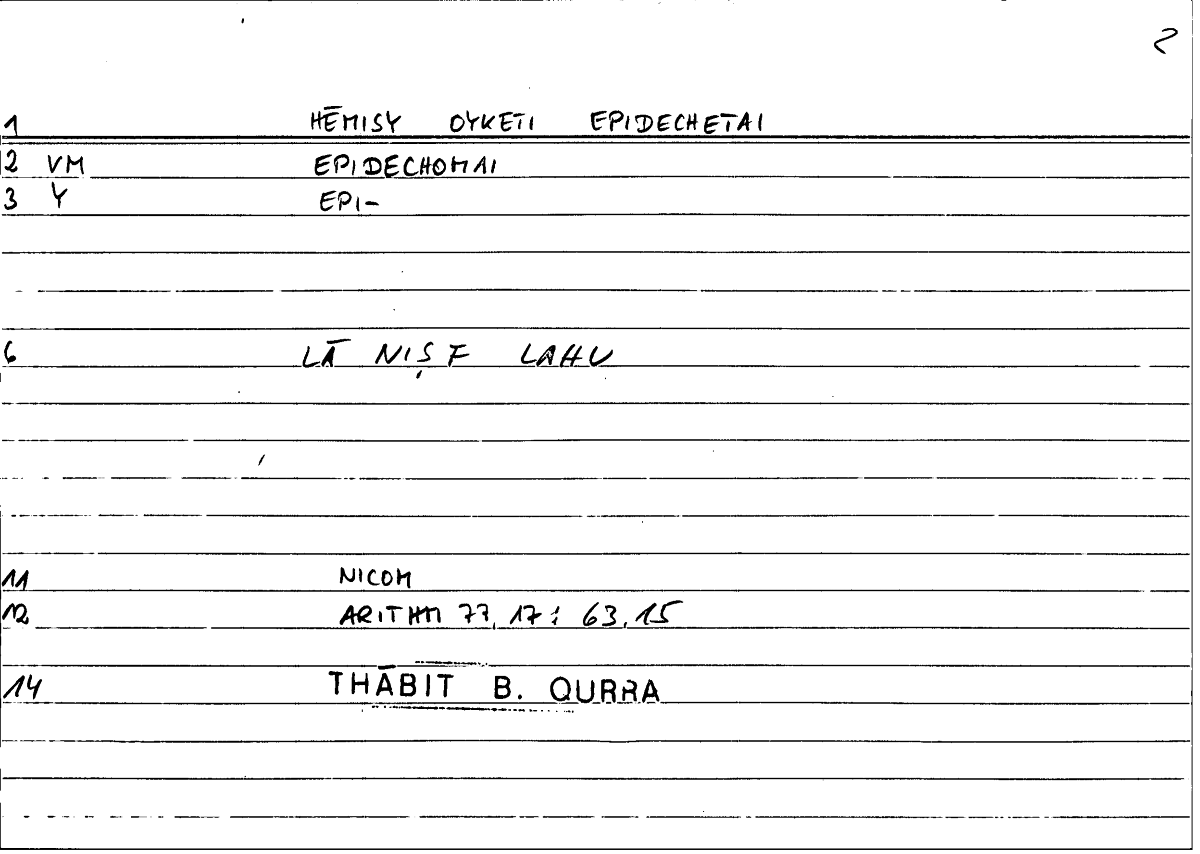 2
1 HĒMISY OYKETI EPIDECHETAI
2 VM EPIDECHOMAI
3 Y EPI-
6 LĀ NIṢF LAHU
11 NICOM
12 ARITHM 77,17 : 63,15
14 THĀBIT B. QURRA